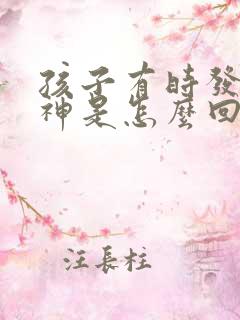 孩子有時發
神是怎麼回
汪長柱